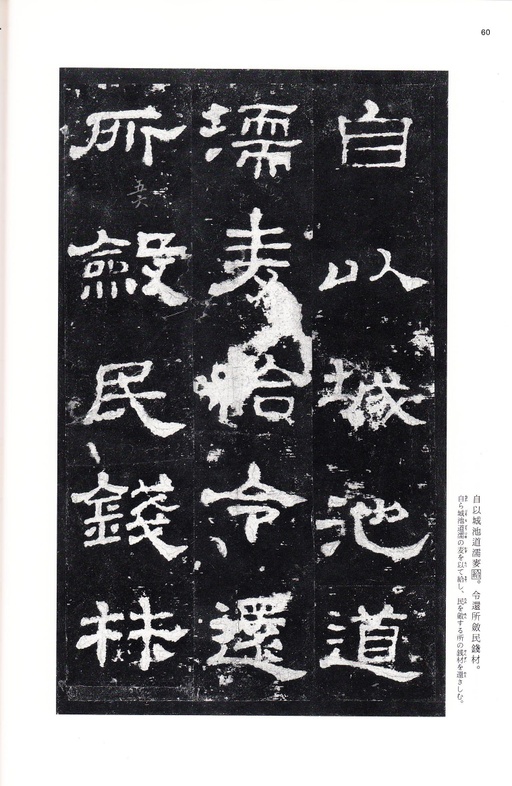 60
自以城池道
壖麦給令還
所斂民錢材
自以城池道濡麥給。令還所斂民錢材。
自ら城池道濡の麦を以て給し、民を斂する所の銭材を還さしむ。